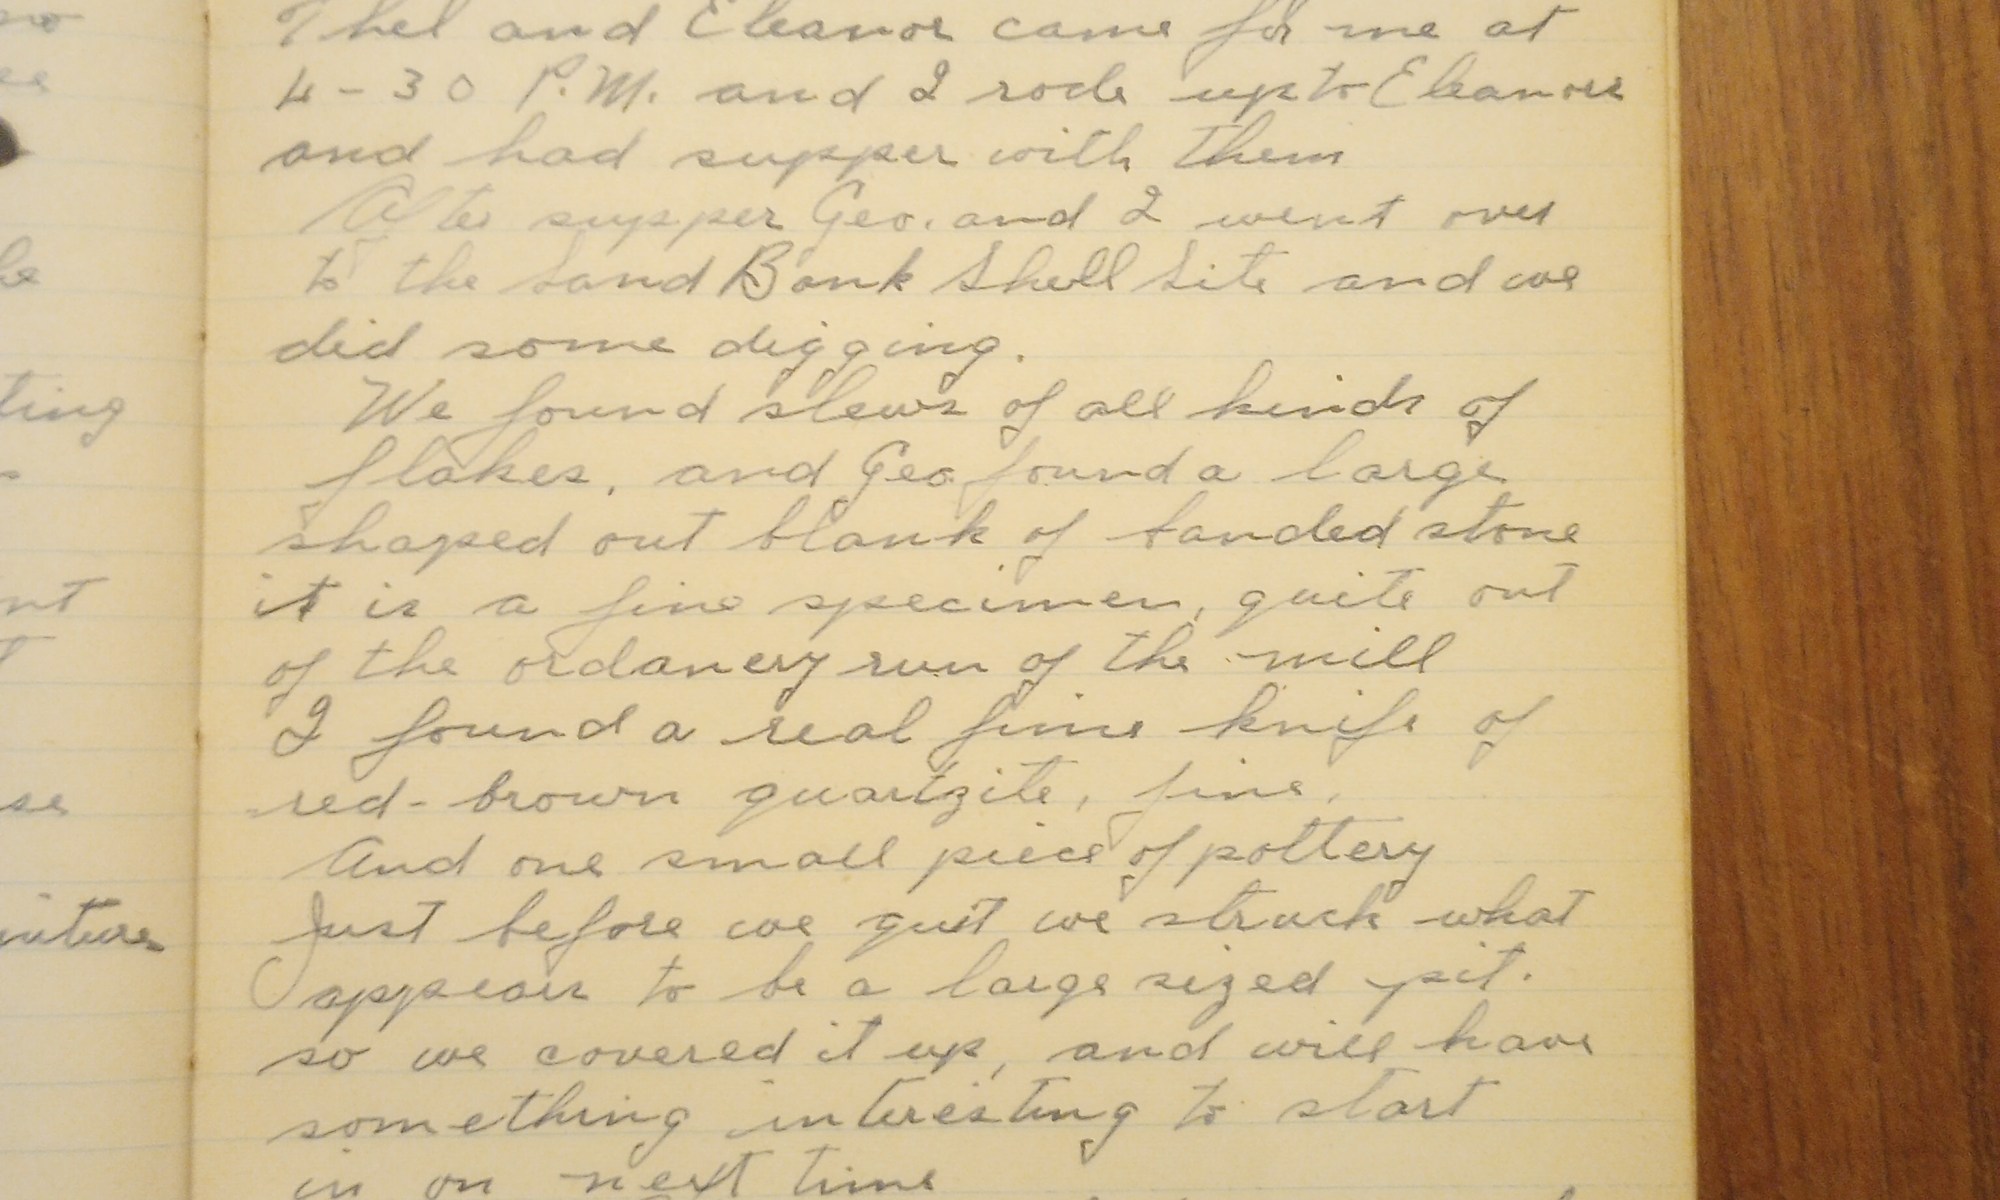 Thel and Eleanor came for me at
4-30 P.M. and I rode up to Eleanors
and had supper with them
After supper Geo. and I went over
to the Sand Bank Shell Site and we
did some digging.
We found slews of all kinds of
flakes, and Geo. found a large
shaped out blank of banded stone
it is a fine specimen, quite out
of the ordanery run of the mill
I found a real fine knife of
red-brown quartzite, fine.
And one small piece of pottery
Just before we quit we struck what
appears to be a large sized pit.
so we covered it up, and will have
something interesting to start
in on next time